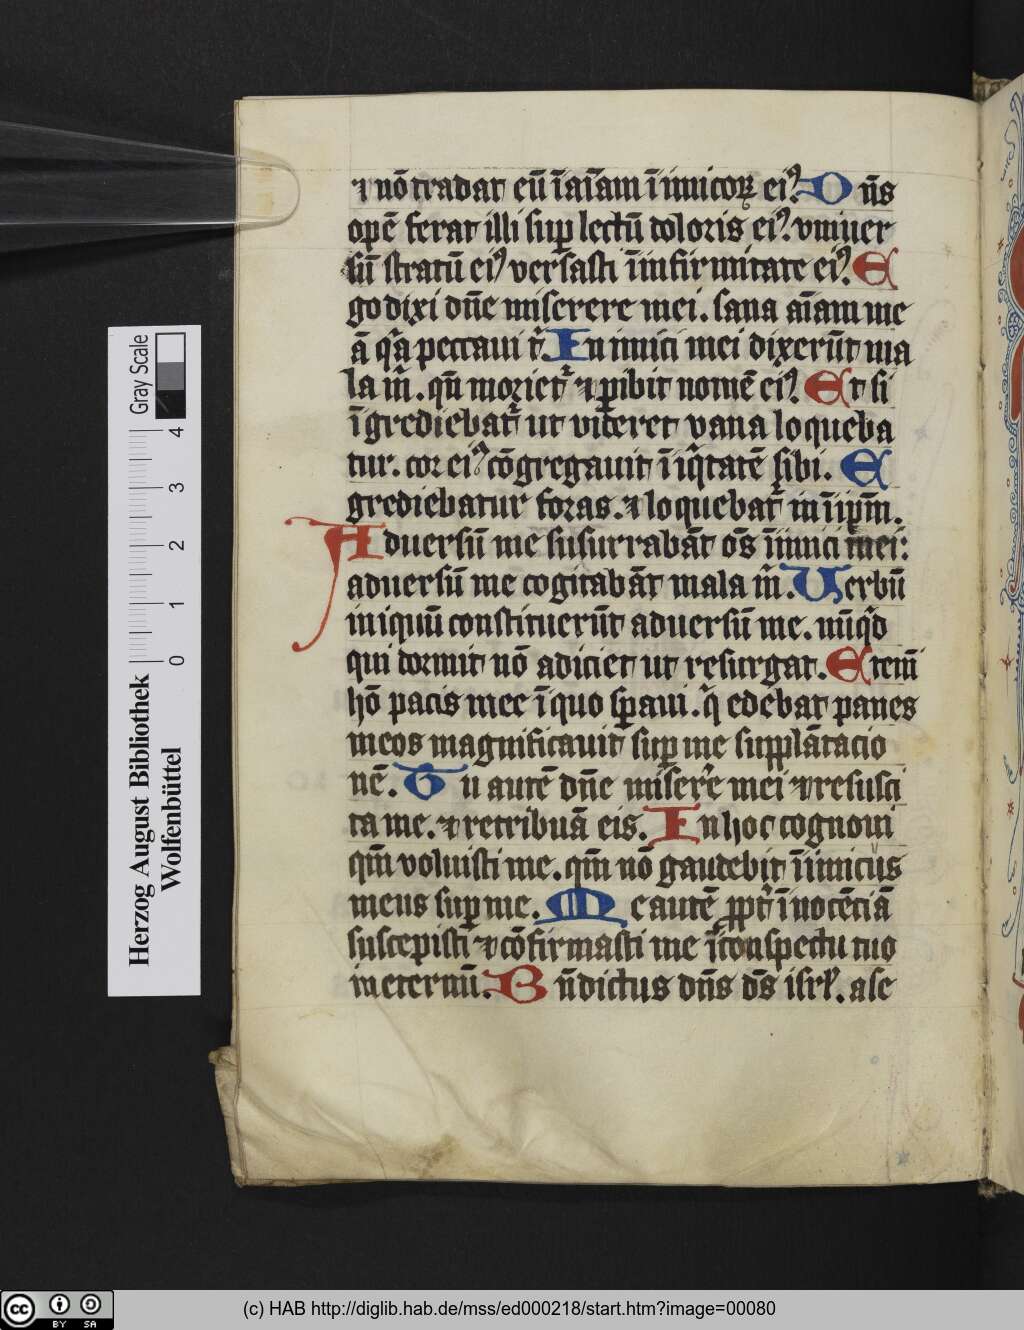 ⁊ nō tradat eū ī aīam īimicoꝝ eiꝰ. Dn̄s
opē ferat illi suꝑ lectū doloris eiꝰ. vniuer
sū stratū eiꝰ versasti ī infirmitate eiꝰ. E
go dixi dn̄e miserere mei. sana aīam me
ā qͣ peccaui t̉. Inimici mei dixerūt ma
la m̉. qn̄ moriet᷑ ⁊ ꝑibit nomē eiꝰ. Et si
īgrediebat᷑ ut videret vana loqueba
tur. cor eiꝰ cōgregauit īiq̉tatē sibi. E
grediebatur foras. ⁊ loquebat᷑ in iip̄m.
Aduersū me susurrabāt os̄ īimici mei:
aduersū me cogitabāt mala m̉. Verbū
iniquū constituerūt aduersū me. nūq̉d
qui dormit nō adiciet ut resurgat. Eteni̅
hō pacis mee ī quo sꝑaui. q̉ edebat panes
meos magnificauit suꝑ me supplātacio
nē. Tu autē dn̄e miser̉e mei ⁊ resusci
ta me. ⁊ retribuā eis. In hoc cognoui
qm̄ voluisti me. qm̄ nō gaudebit īimicus
meus suꝑ me. Me autē ꝓpt̉ īnocēciā
suscepisti ⁊ cōfirmasti me ī conspectu tuo
in eternū. Bn̄dictus dn̄s ds̄ isrl̓. a se
Herzog August Bibliothek
Wolfenbüttel
0 1 2 3 4
Gray Scale
(c) HAB http://diglib.hab.de/mss/ed000218/start.htm?image=00080
cc BY SA